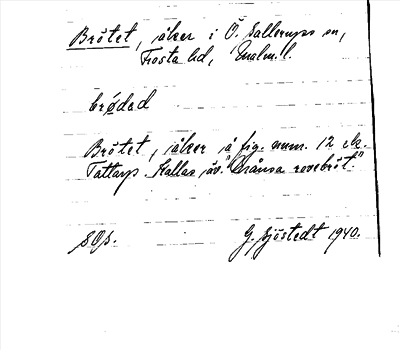 Brötet, åker i Ö. Sallerups sn,
Frosta hd, Malm. l.
brødəd
Brötet, åker å fig. num. 12 ebr.
Tattarp. Kallas äv. "Månsa rovebröt."
SOp.
G. Sjöstedt 1940.